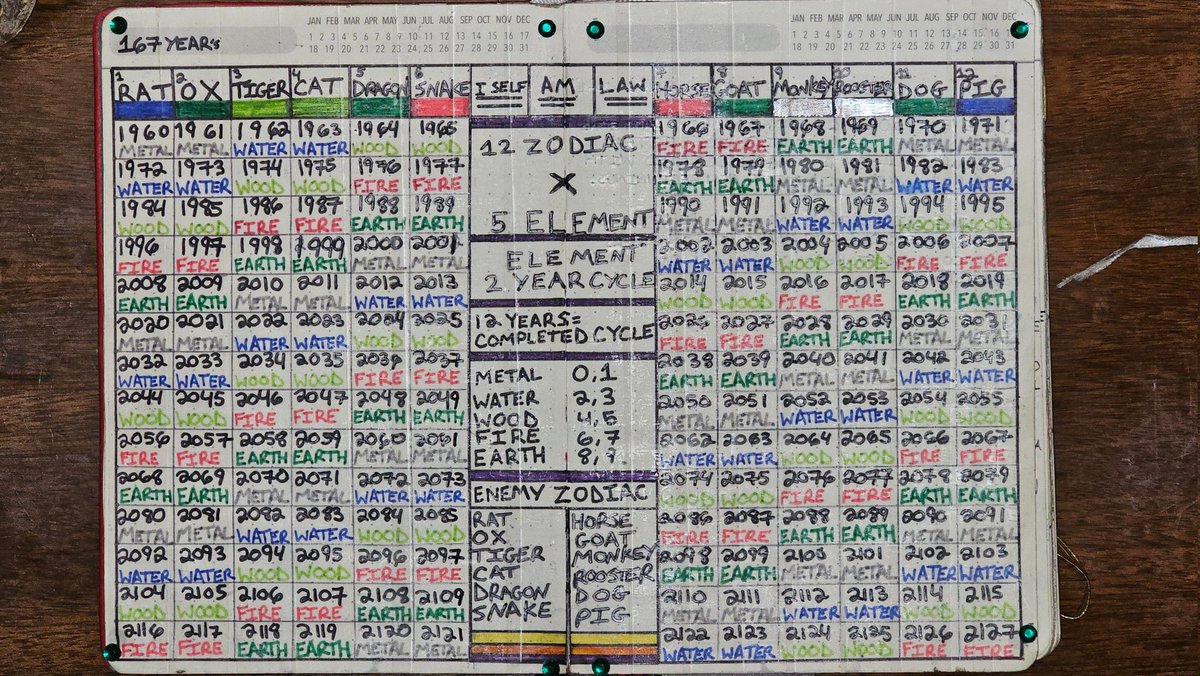 JAN FEB MAR APR MAY JUN JUL AUG SEP OCT NOV DEC
1 2 3 4 5 6 7 8 9 10 11 12 13 14 15 16 17
18 19 20 21 22 23 24 25 26 27 28 29 30 31
JAN FEB MAR APR MAY JUN JUL AUG SEP OCT NOV DEC
1 2 3 4 5 6 7 8 9 10 11 12 13 14 15 16 17
18 19 20 21 22 23 24 25 26 27 28 29 30 31
167 YEARS
1 2 3 4 5 6
RAT OX TIGER CAT DRAGON SNAKE
1960 1961 1962 1963 1964 1965
METAL METAL WATER WATER WOOD WOOD
1972 1973 1974 1975 1976 1977
WATER WATER WOOD WOOD FIRE FIRE
1984 1985 1986 1987 1988 1989
WOOD WOOD FIRE FIRE EARTH EARTH
1996 1997 1998 1999 2000 2001
FIRE FIRE EARTH EARTH METAL METAL
2008 2009 2010 2011 2012 2013
EARTH EARTH METAL METAL WATER WATER
2020 2021 2022 2023 2024 2025
METAL METAL WATER WATER WOOD WOOD
2032 2033 2034 2035 2036 2037
WATER WATER WOOD WOOD FIRE FIRE
2044 2045 2046 2047 2048 2049
WOOD WOOD FIRE FIRE EARTH EARTH
2056 2057 2058 2059 2060 2061
FIRE FIRE EARTH EARTH METAL METAL
2068 2069 2070 2071 2072 2073
EARTH EARTH METAL METAL WATER WATER
2080 2081 2082 2083 2084 2085
METAL METAL WATER WATER WOOD WOOD
2092 2093 2094 2095 2096 2097
WATER WATER WOOD WOOD FIRE FIRE
2104 2105 2106 2107 2108 2109
WOOD WOOD FIRE FIRE EARTH EARTH
2116 2117 2118 2119 2120 2121
FIRE FIRE EARTH EARTH METAL METAL
I SELF AM LAW
12 ZODIAC
X
5 ELEMENT
ELEMENT
2 YEAR CYCLE
12 YEARS=
COMPLETED CYCLE
METAL 0,1
WATER 2,3
WOOD 4,5
FIRE 6,7
EARTH 8,9
ENEMY ZODIAC
RAT HORSE
OX GOAT
TIGER MONKEY
CAT ROOSTER
DRAGON DOG
SNAKE PIG
7 8 9 10 11 12
HORSE GOAT MONKEY ROOSTER DOG PIG
1966 1967 1968 1969 1970 1971
FIRE FIRE EARTH EARTH METAL METAL
1978 1979 1980 1981 1982 1983
EARTH EARTH METAL METAL WATER WATER
1990 1991 1992 1993 1994 1995
METAL METAL WATER WATER WOOD WOOD
2002 2003 2004 2005 2006 2007
WATER WATER WOOD WOOD FIRE FIRE
2014 2015 2016 2017 2018 2019
WOOD WOOD FIRE FIRE EARTH EARTH
2026 2027 2028 2029 2030 2031
FIRE FIRE EARTH EARTH METAL METAL
2038 2039 2040 2041 2042 2043
EARTH EARTH METAL METAL WATER WATER
2050 2051 2052 2053 2054 2055
METAL METAL WATER WATER WOOD WOOD
2062 2063 2064 2065 2066 2067
WATER WATER WOOD WOOD FIRE FIRE
2074 2075 2076 2077 2078 2079
WOOD WOOD FIRE FIRE EARTH EARTH
2086 2087 2088 2089 2090 2091
FIRE FIRE EARTH EARTH METAL METAL
2098 2099 2100 2101 2102 2103
EARTH EARTH METAL METAL WATER WATER
2110 2111 2112 2113 2114 2115
METAL METAL WATER WATER WOOD WOOD
2122 2123 2124 2125 2126 2127
WATER WATER WOOD WOOD FIRE FIRE